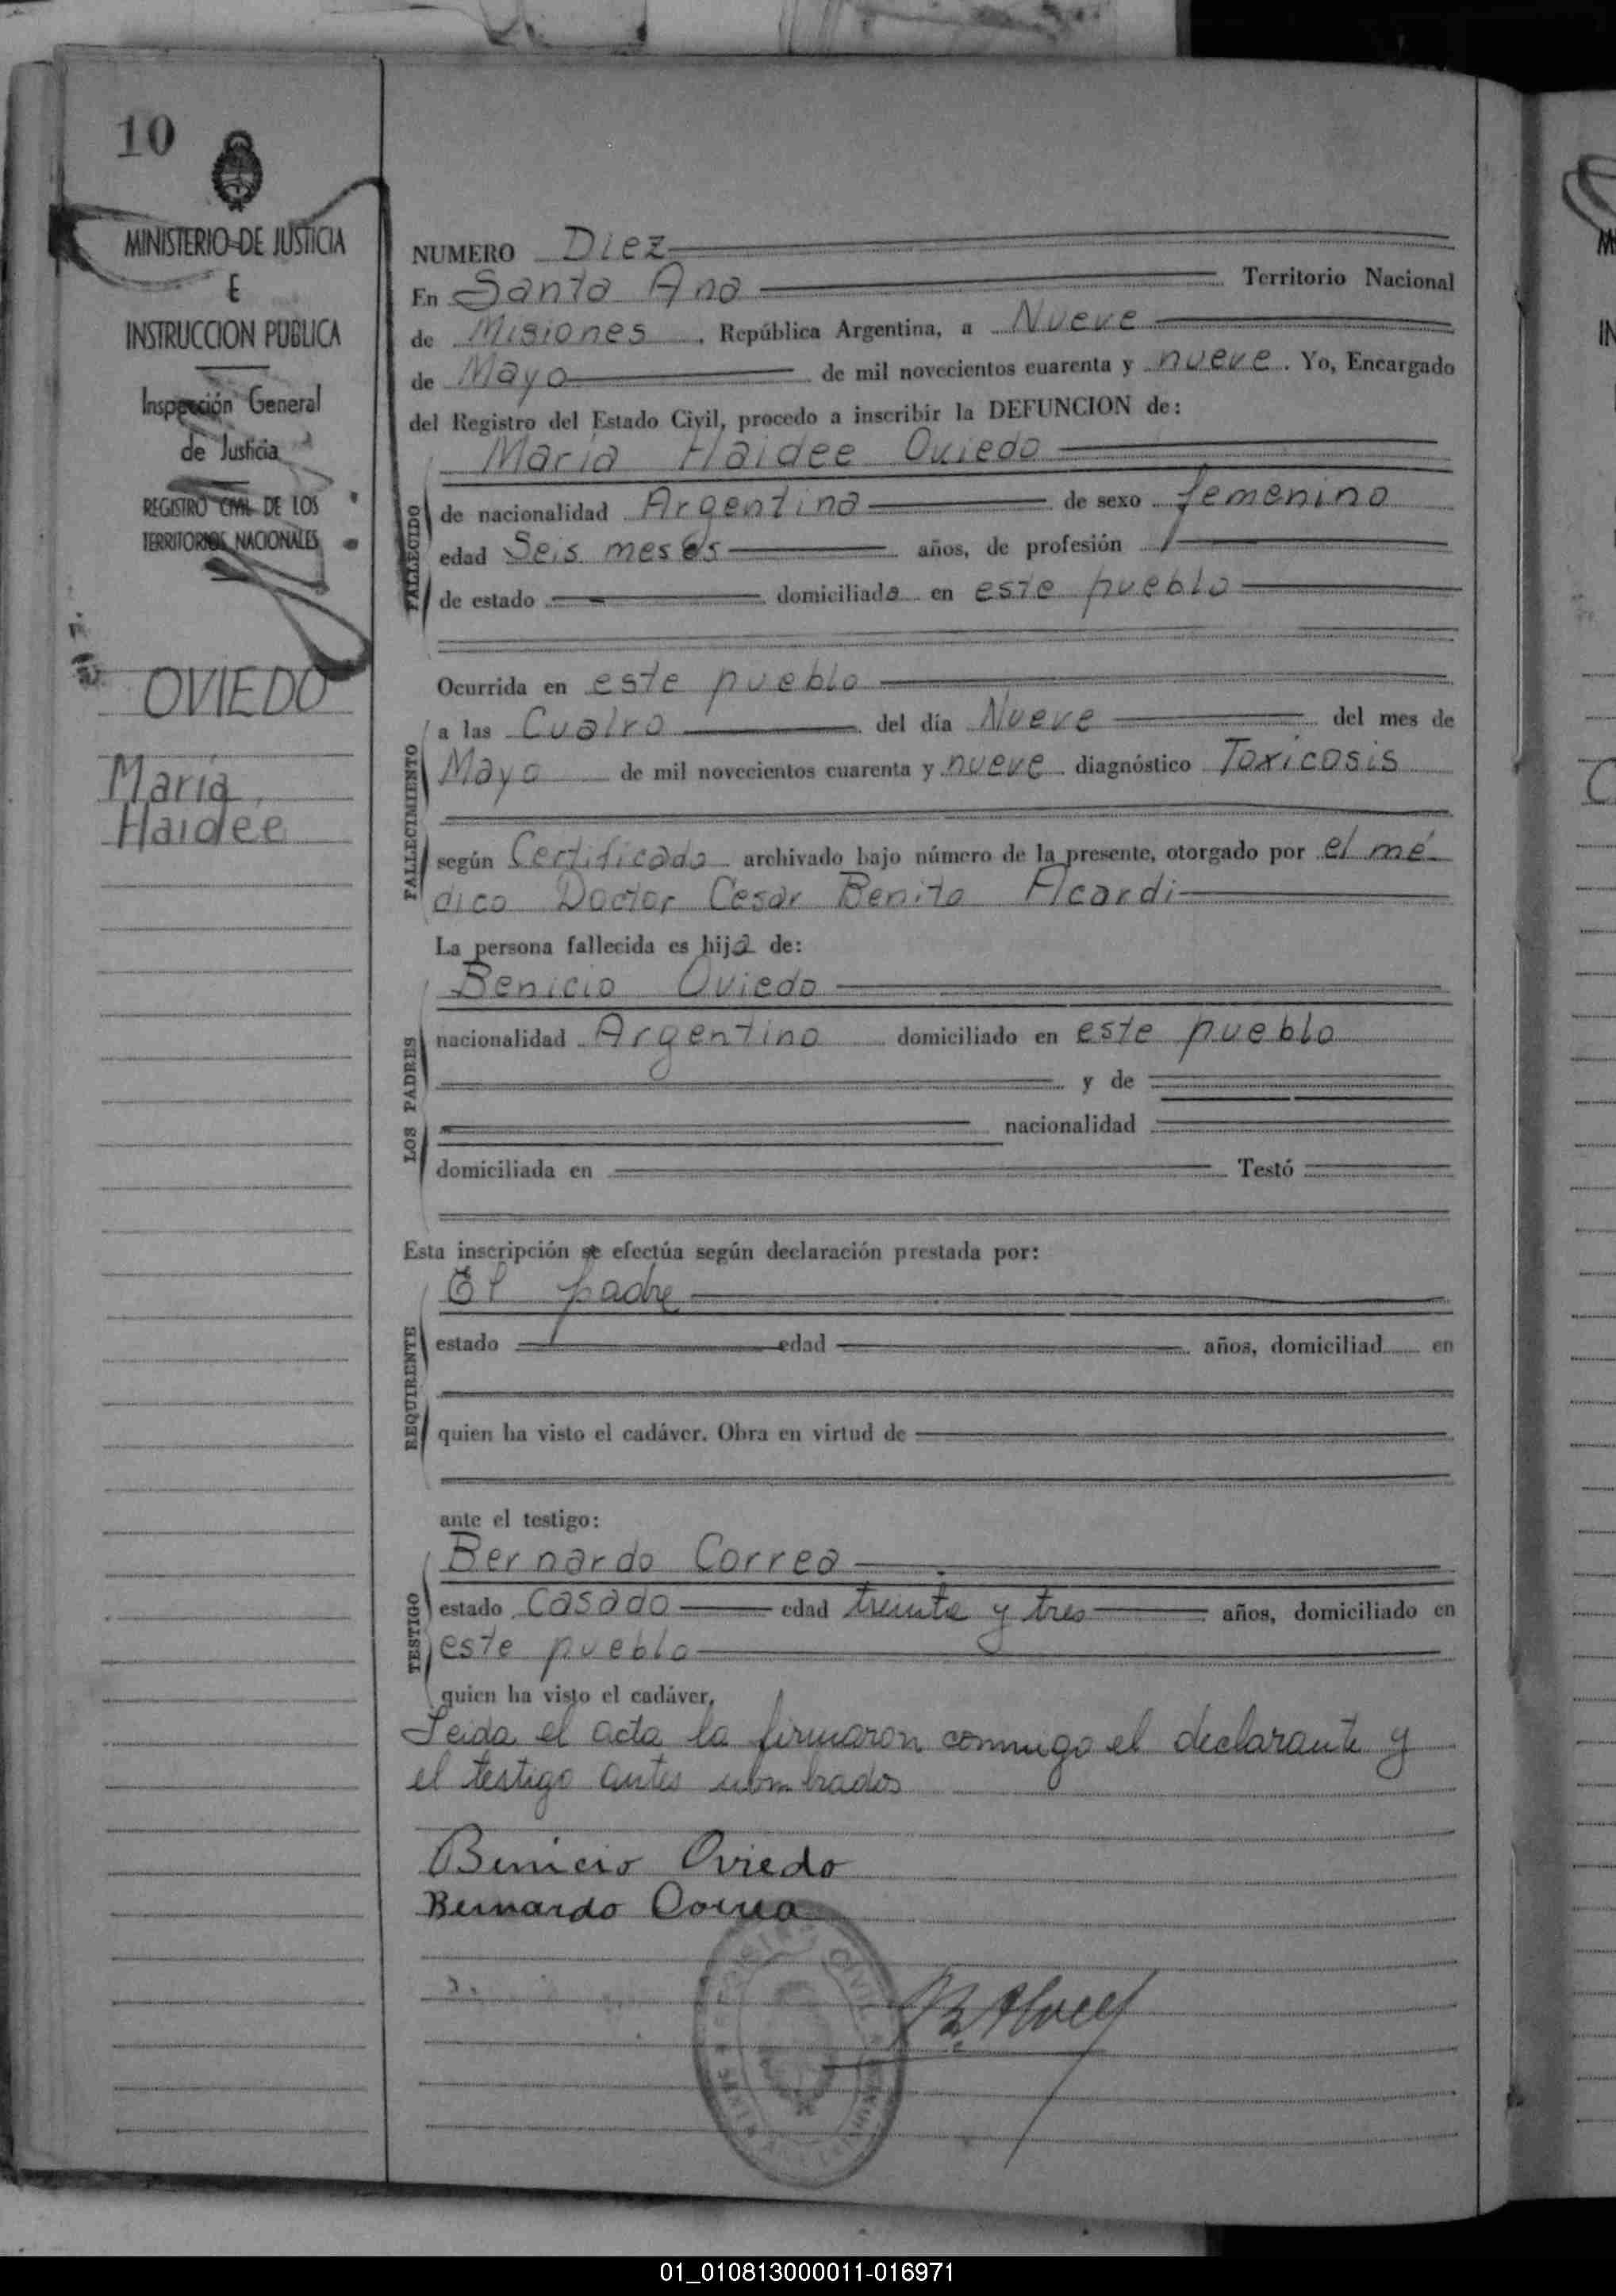 10
MINISTERIO DE JUSTICIA
E
INSTRUCCION PUBLICA
Inspección General
de Justicia
REGISTRO CIVIL DE LOS
TERRITORIOS NACIONALES
OVIEDO
María
Haidee
NUMERO Diez
En Santa Ana Territorio Nacional
de Misiones, República Argentina, a Nueve
de Mayo de mil novecientos cuarenta y nueve. Yo, Encargado
del Registro del Estado Civil, procedo a inscribir la DEFUNCION de:
María Haidee Oviedo
FALLECIDO
de nacionalidad Argentina de sexo femenino
edad Seis meses años, de profesión
de estado domiciliada en este pueblo
Ocurrida en este pueblo
FALLECIMIENTO
a las Cuatro del día Nueve del mes de
Mayo de mil novecientos cuarenta y nueve diagnóstico Toxicosis
según Certificado archivado bajo número de la presente, otorgado por el mé-
dico Doctor Cesar Benito Acardi
La persona fallecida es hija de:
Benicio Oviedo
LOS PADRES
nacionalidad Argentino domiciliado en este pueblo
y de
nacionalidad
domiciliada en Testó
Esta inscripción se efectúa según declaración prestada por:
El padre
REQUIRENTE
estado edad años, domiciliad en
quien ha visto el cadáver. Obra en virtud de
ante el testigo:
Bernardo Correa
TESTIGO
estado Casado edad treinta y tres años, domiciliado en
este pueblo
quien ha visto el cadáver.
Leida el acta la firmaron conmigo el declarante y
el testigo antes nombrados
Benicio Oviedo
Bernardo Correa
01_010813000011-016971